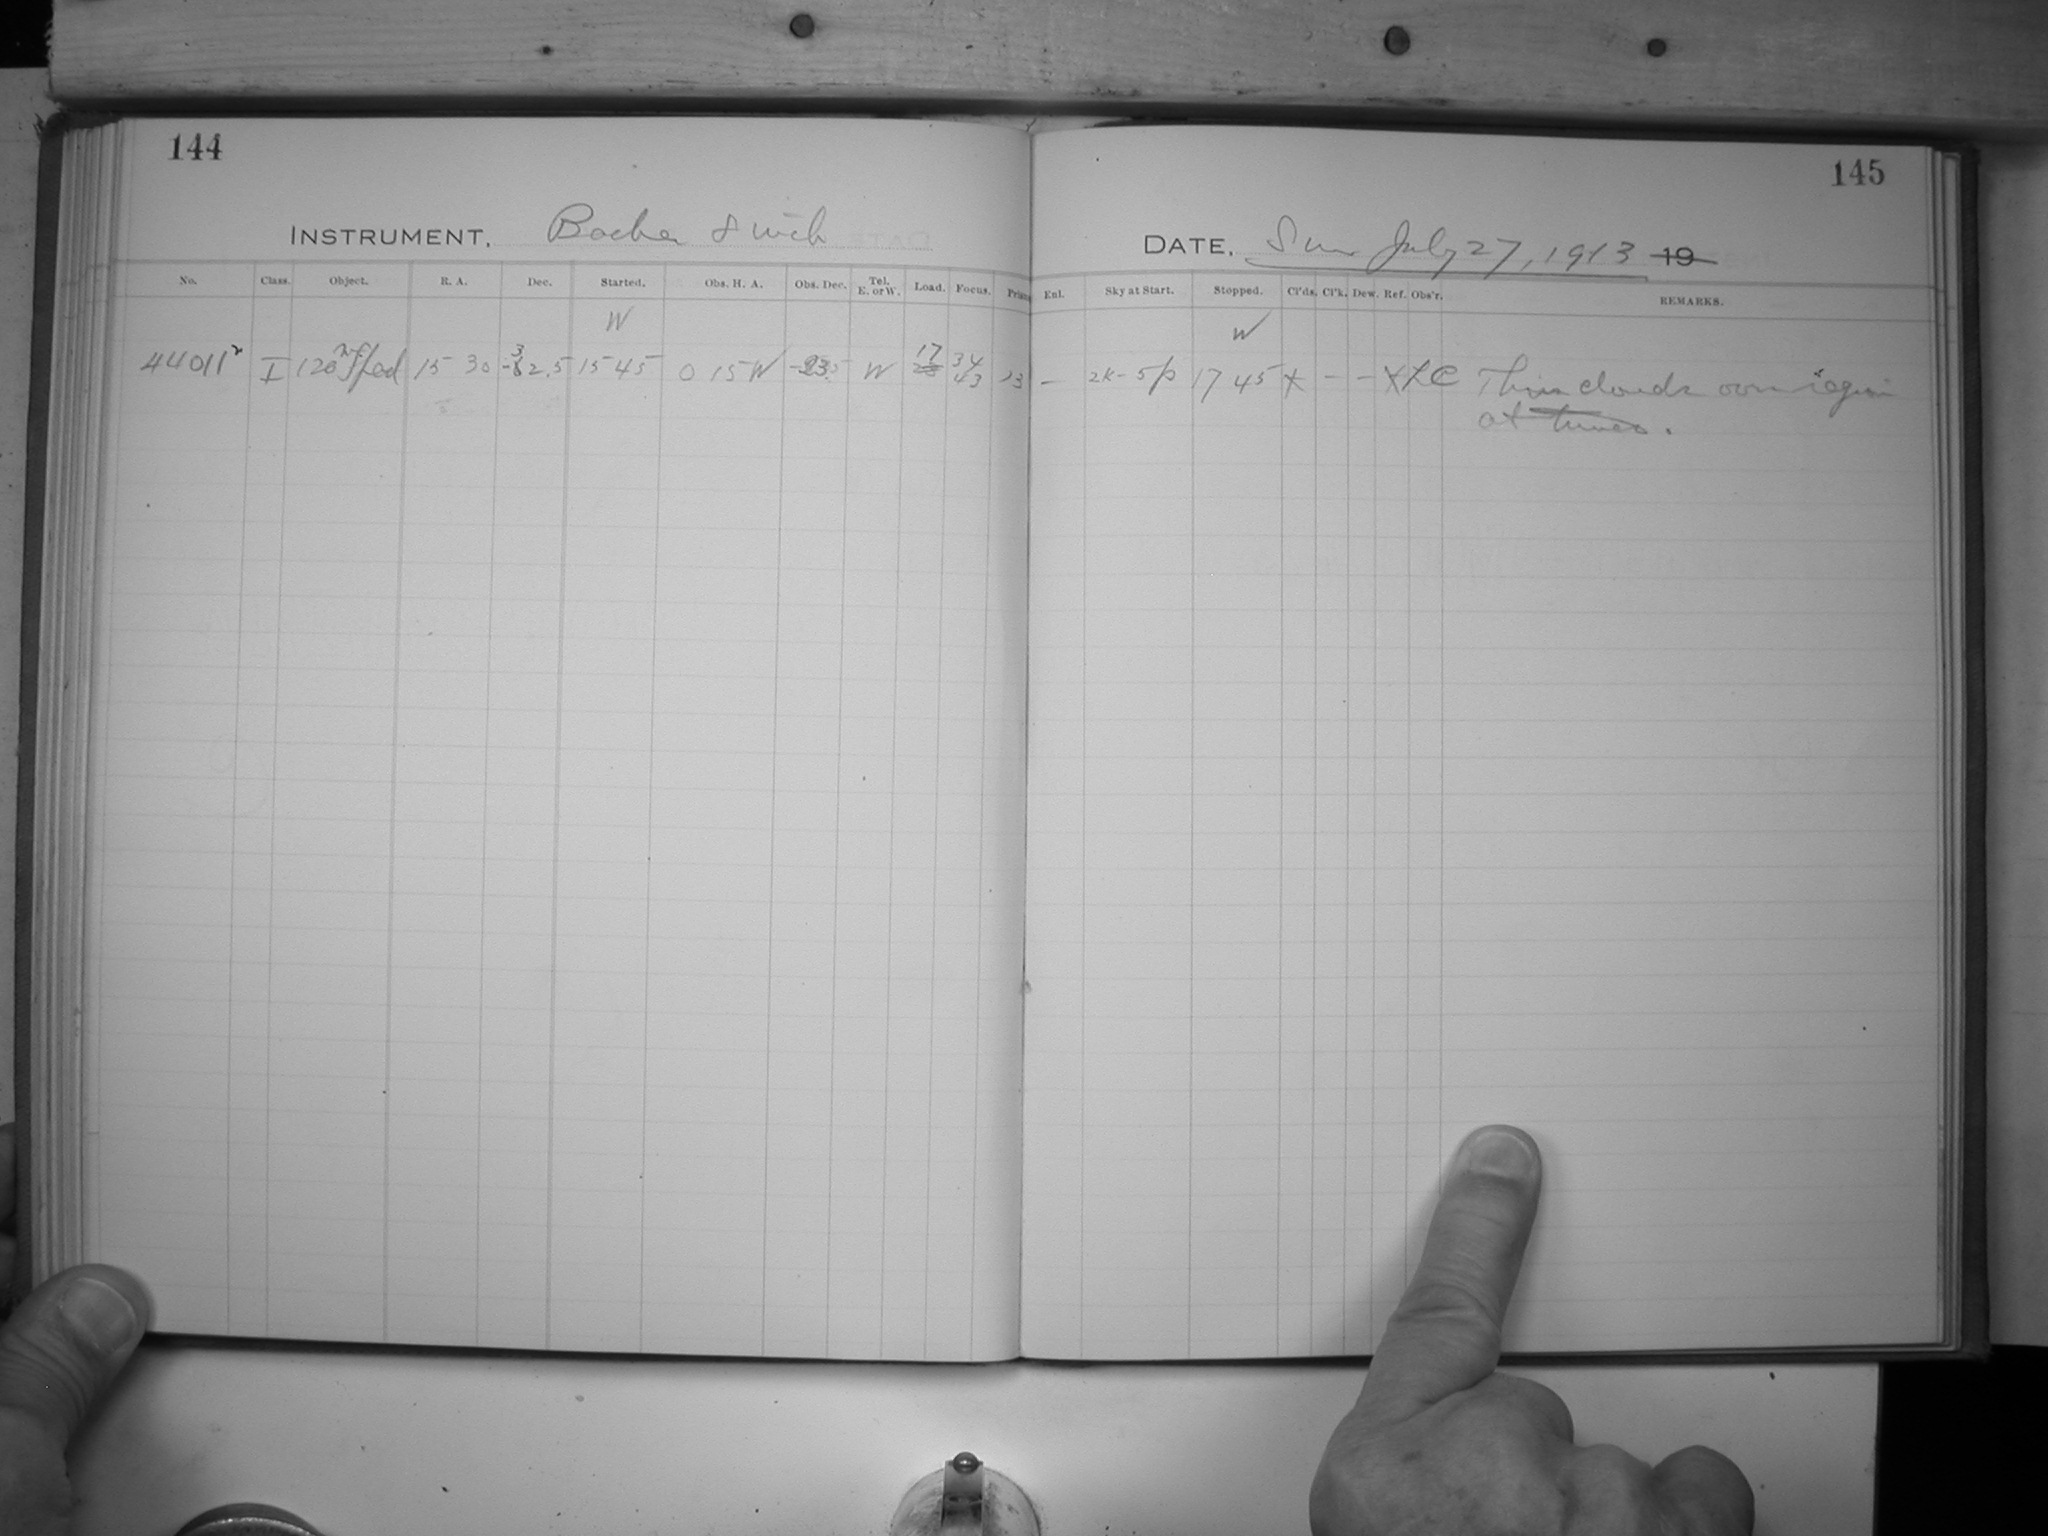 144
145
INSTRUMENT, Bache 8 inch
DATE, Sun July 27, 1913 19
No. Class. Object. R. A. Dec. Started. Obs. H. A. Obs. Dec. Tel. E. or W. Load. Focus.
Enl. Sky at Start. Stopped. Cl'ds. Cl'k. Dew. Ref. Obs'r. REMARKS.
W
W
44011 I 120 15 30 2.5 15 45 0 15 W W 17 34 43 13
– 2K-5p 17 45 X – – X LC Thin clouds over region
at times.